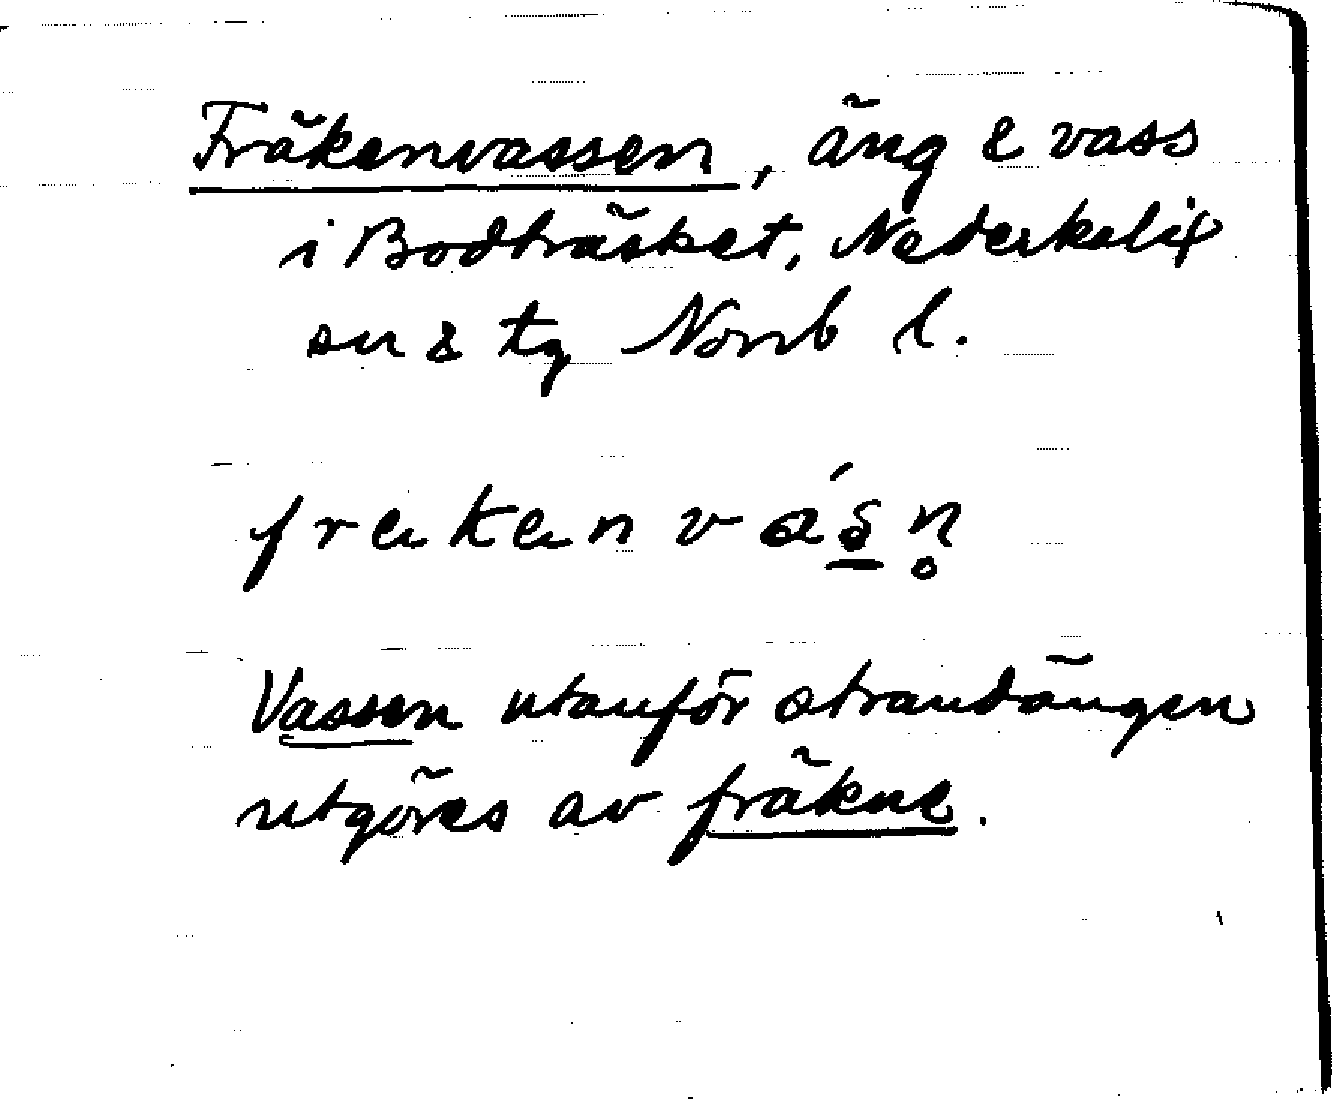 Fräkenvassen, äng & vass
i Bodträsket, Nederkalix
sn & tg Norrb l.
frekenvásn̥
Vassen utanför strandängen
utgöres av fräkne.